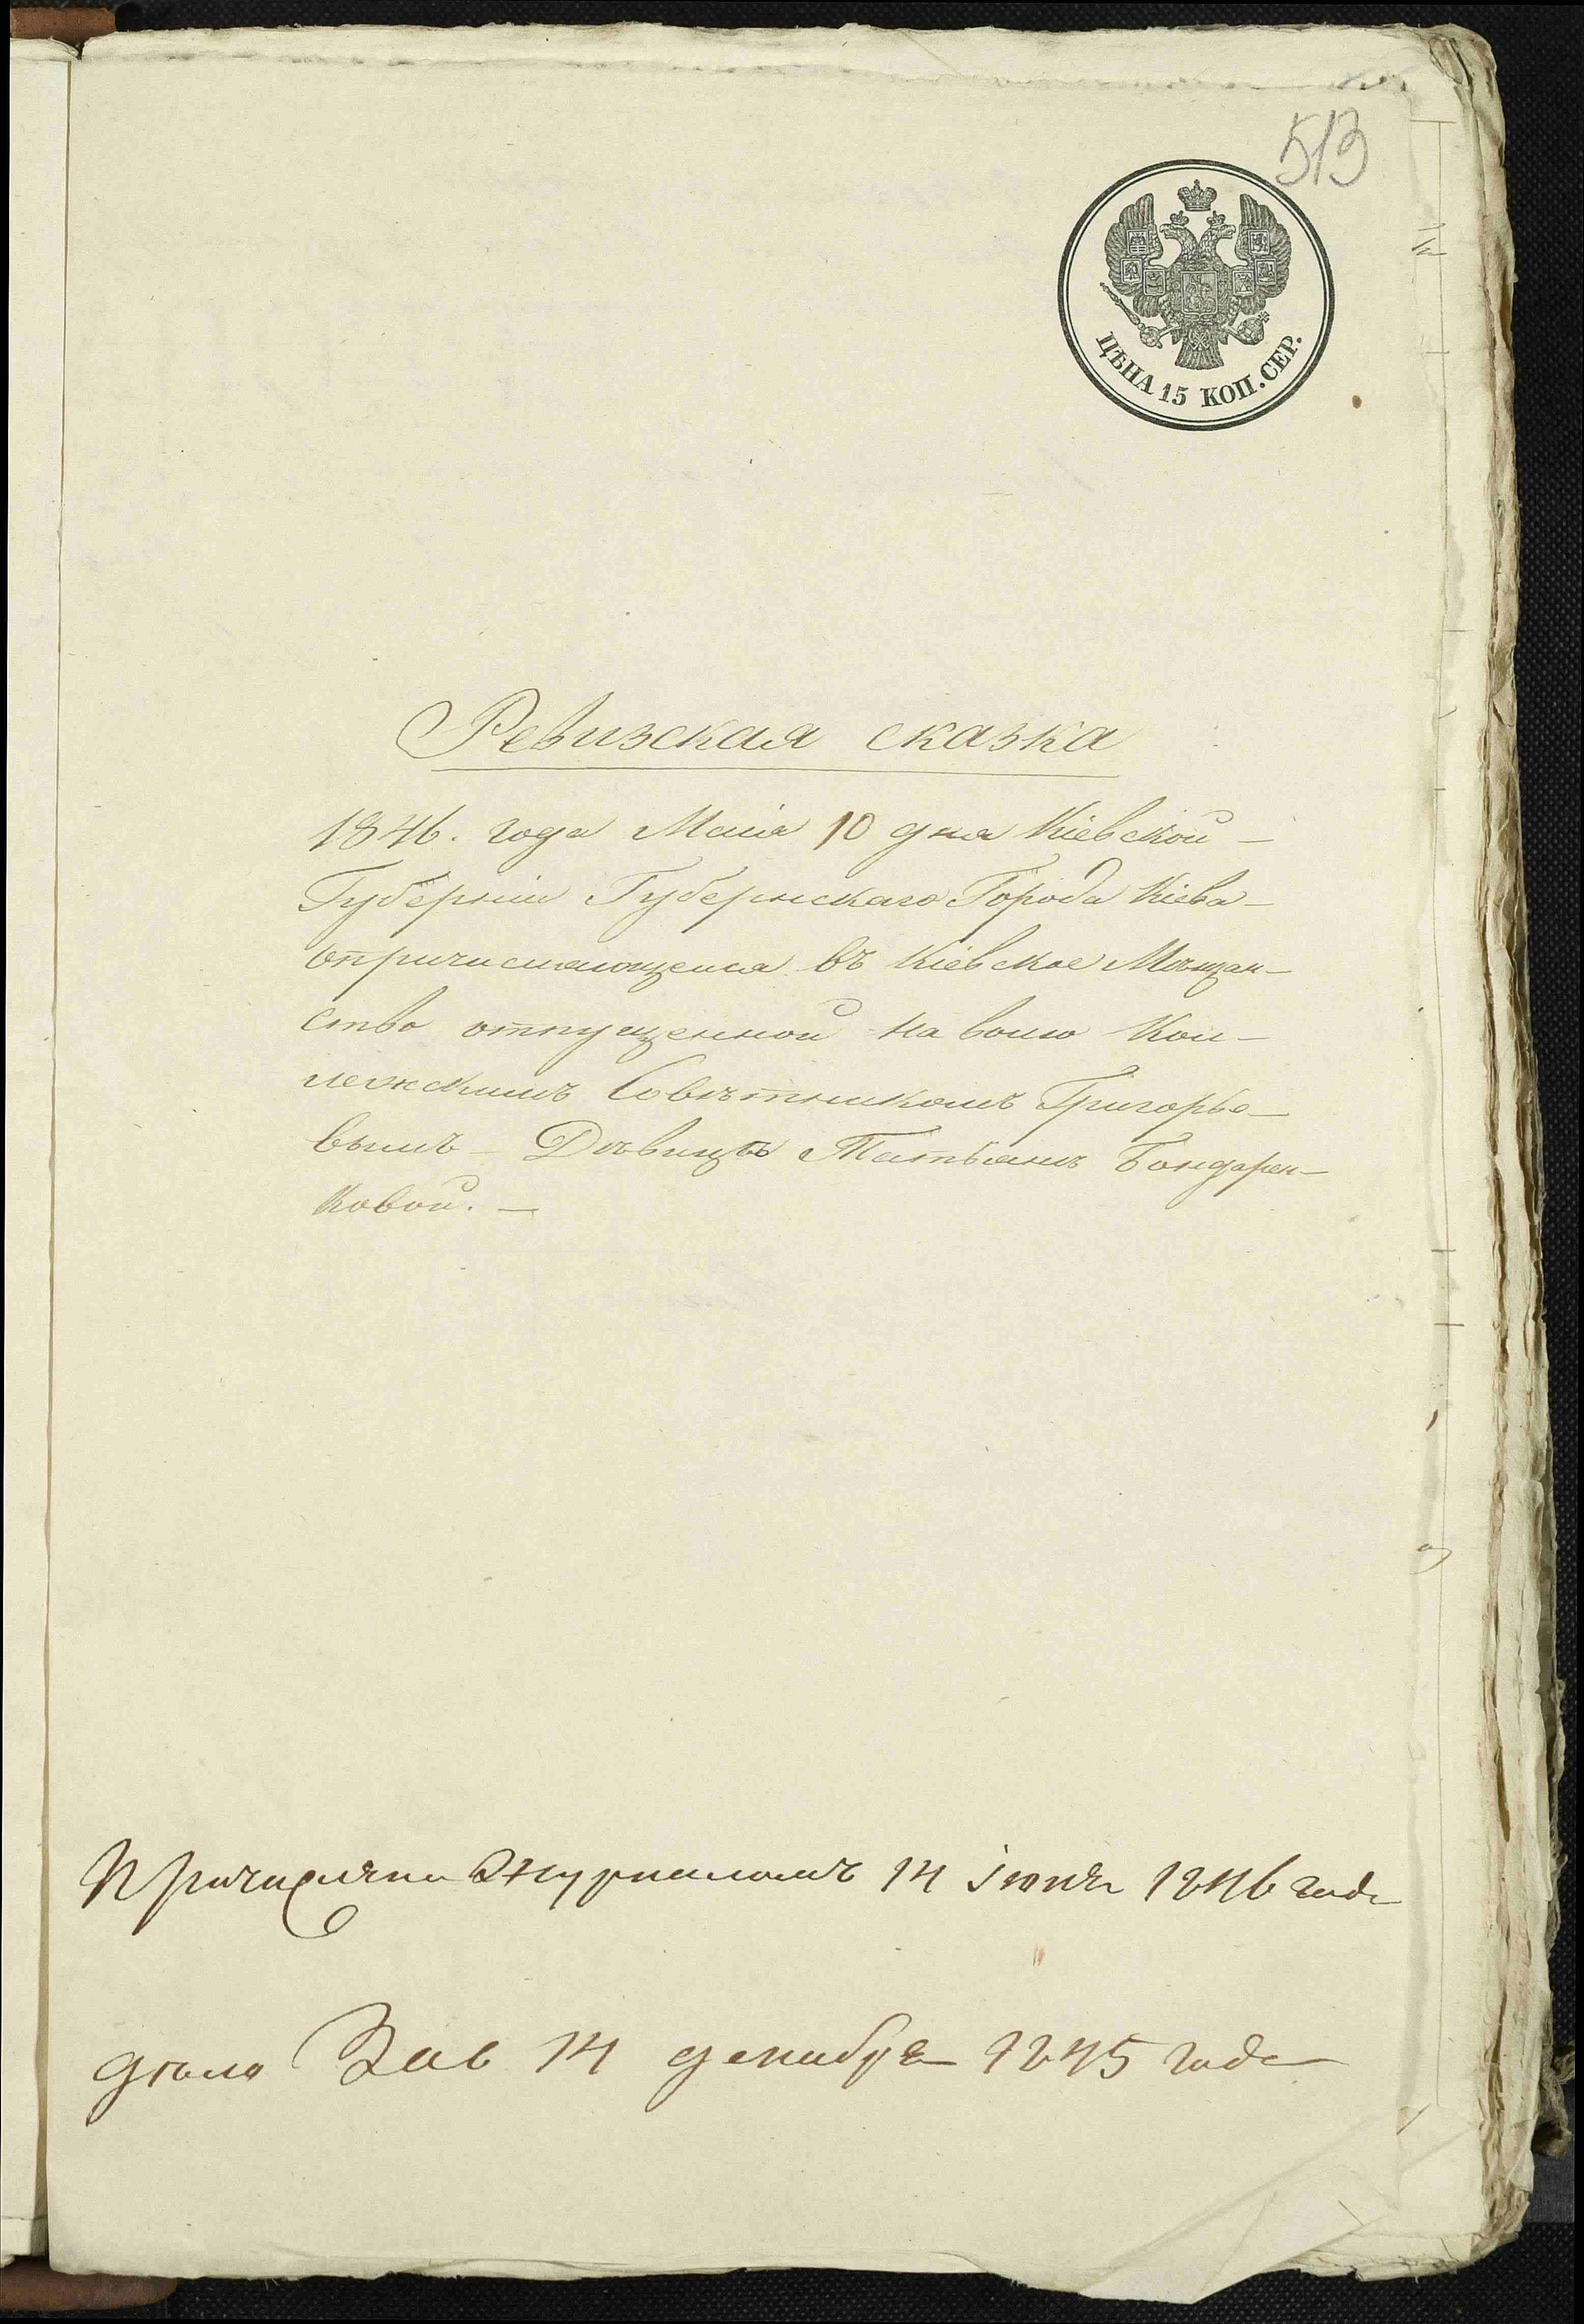 513
ЦѢНА 15 КОП. СЕР.
Ревизская сказка
1846. года Маія 10 дня Кіевской –
Губерніи Губернскаго Города Кіева –
опричисляющейся въ Кіевское Мѣщан–
ство отпущенной на волю Кол–
лежскимъ Совѣтникомъ Григорье–
вымъ – Дѣвицѣ Татьянѣ Бондарен–
ковой. –
Причислена Журналомъ 14 іюня 1846 года
дѣло 14 декабря 1845 года